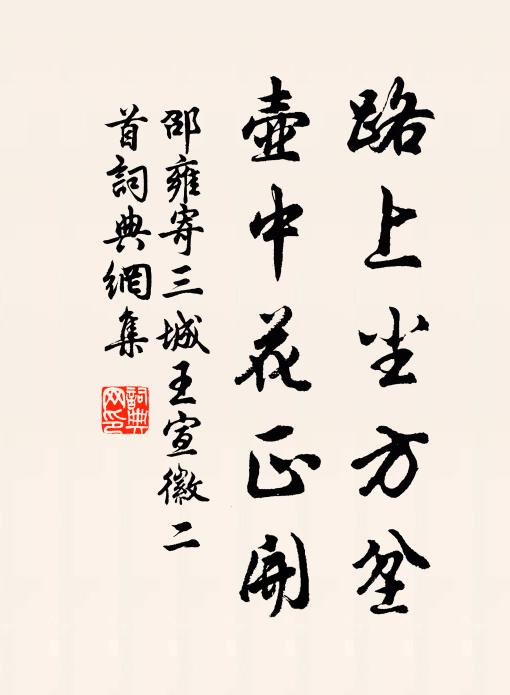 路上尘方坌
壺中花正開
邵雍寄三城王宣徽二
首詞典網集
詞典
网印